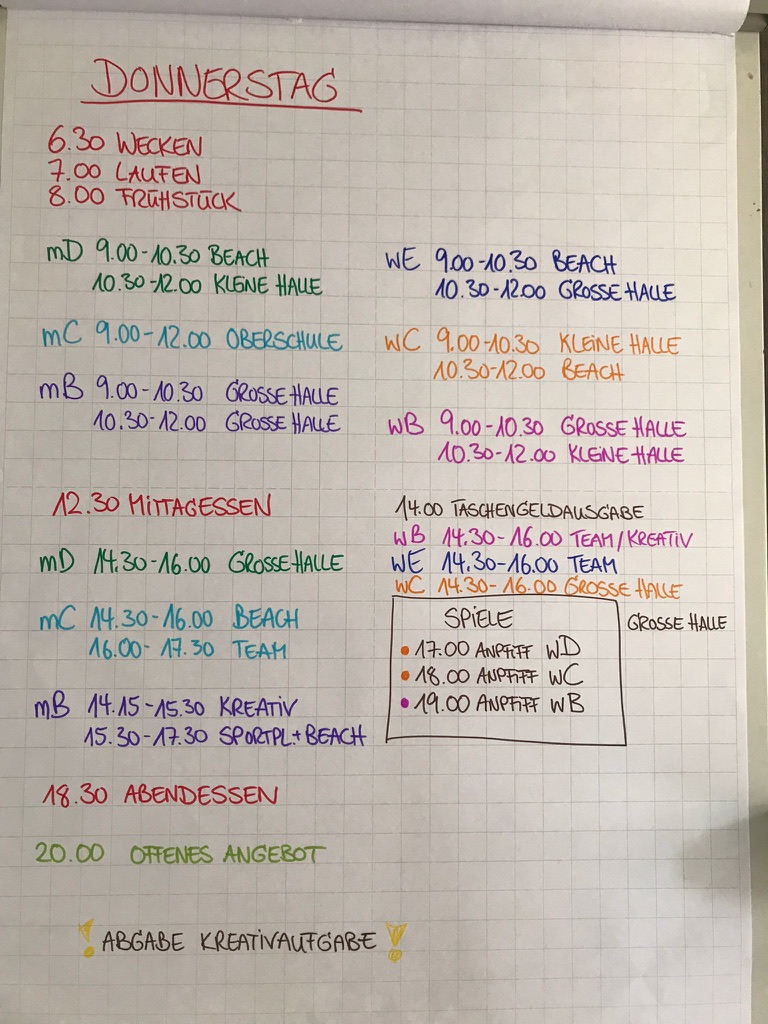 DONNERSTAG
6.30 WECKEN
7.00 LAUFEN
8.00 FRÜHSTÜCK
mD 9.00-10.30 BEACH
10.30-12.00 KLEINE HALLE
mC 9.00-12.00 OBERSCHULE
mB 9.00-10.30 GROSSE HALLE
10.30-12.00 GROSSE HALLE
WE 9.00-10.30 BEACH
10.30-12.00 GROSSE HALLE
WC 9.00-10.30 KLEINE HALLE
10.30-12.00 BEACH
WB 9.00-10.30 GROSSE HALLE
10.30-12.00 KLEINE HALLE
12.30 MITTAGESSEN
mD 14.30-16.00 GROSSE HALLE
mC 14.30-16.00 BEACH
16.00-17.30 TEAM
mB 14.15-15.30 KREATIV
15.30-17.30 SPORTPL.+BEACH
14.00 TASCHENGELDAUSGABE
WB 14.30-16.00 TEAM/KREATIV
WE 14.30-16.00 TEAM
WC 14.30-16.00 GROSSE HALLE
SPIELE
GROSSE HALLE
• 17.00 ANPFIFF WD
• 18.00 ANPFIFF WC
• 19.00 ANPFIFF WB
18.30 ABENDESSEN
20.00 OFFENES ANGEBOT
! ABGABE KREATIVAUFGABE !